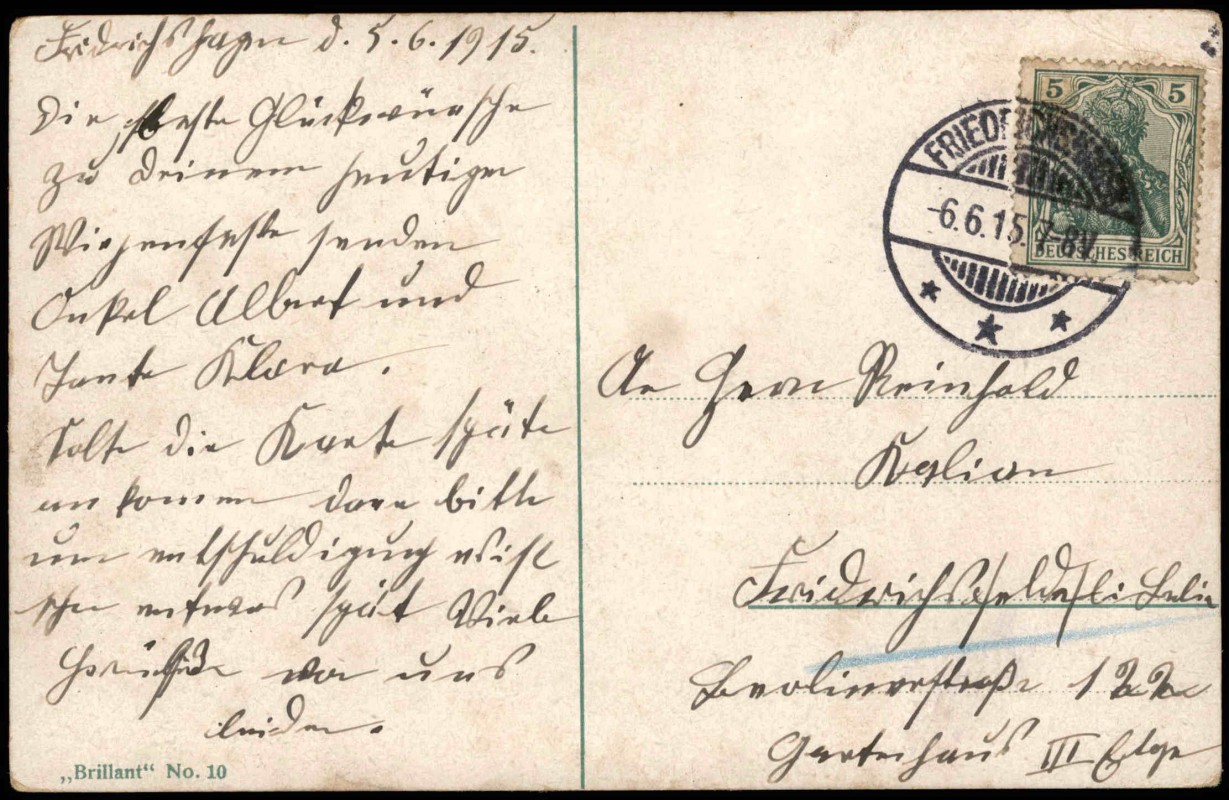 Fridrichshagen d. 5.6.1915.
Die beste Glückwünsche
zu deinem heutigen
Wiegenfeste senden
Onkel Albert und
Tante Klara.
Solte die Karte späte
an kommen dann bitte
um entschuldigung es ist
schon etwas spät Viele
Grüße von uns
beiden.
„Brillant“ No. 10
5 5
DEUTSCHES REICH
FRIEDRICHSHAGEN
-6.6.15.7-8V.
An Herrn Reinhold
Fridrichsfelde bei Berlin
Berlinerstraße 122
Gartenhaus III Etge